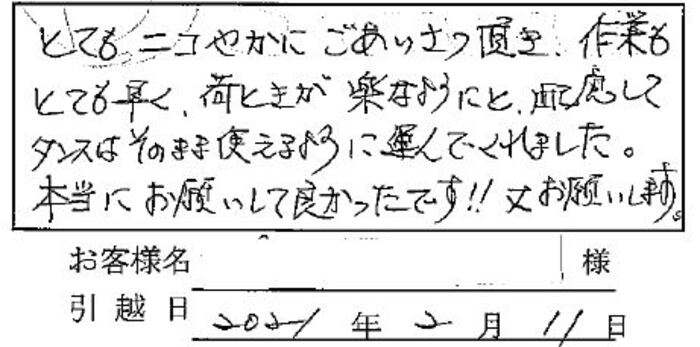 とてもニコやかにごあいさつ頂き、作業も
とても早く、荷ときが楽なようにと、配慮して
タンスはそのまま使えるように運んでくれました。
本当にお願いして良かったです!!又お願いします。
お客様名 様
引越日 2021年2月11日